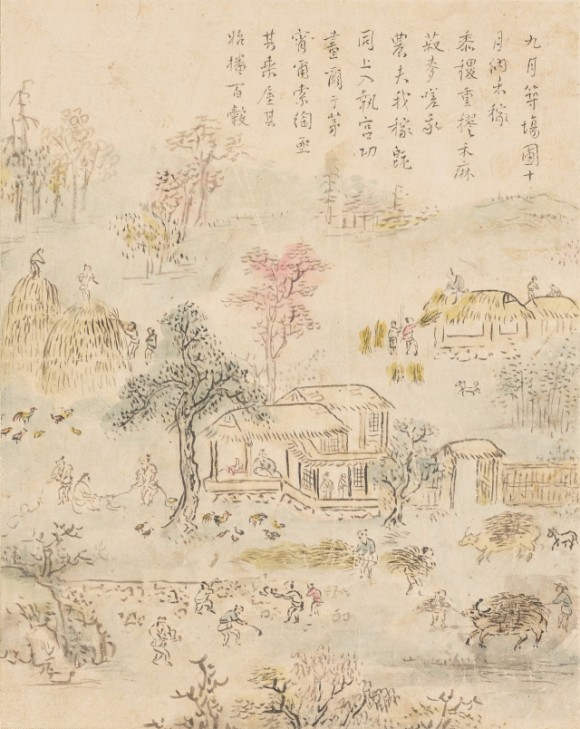 九月築場圃十
月納禾稼
黍稷重穋禾麻
菽麥嗟我
農夫我稼既
同上入執宮功
晝爾于茅
宵爾索綯亟
其乘屋其
始播百穀